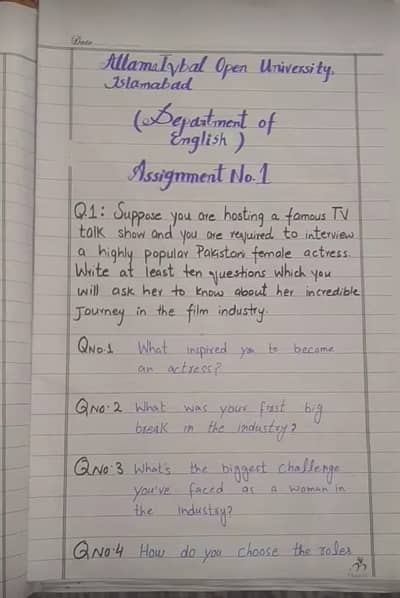 Date
Allama Iqbal Open University,
Islamabad
(Department of
English)
Assignment No.1
Q.1: Suppose you are hosting a famous TV
talk show and you are required to interview
a highly popular Pakistani female actress.
Write at least ten questions which you
will ask her to know about her incredible
Journey in the film industry.
QNo.1 What inspired you to become
an actress?
QNo.2 What was your first big
break in the industry?
QNo.3 What's the biggest challenge
you've faced as a woman in
the industry?
QNo.4 How do you choose the roles